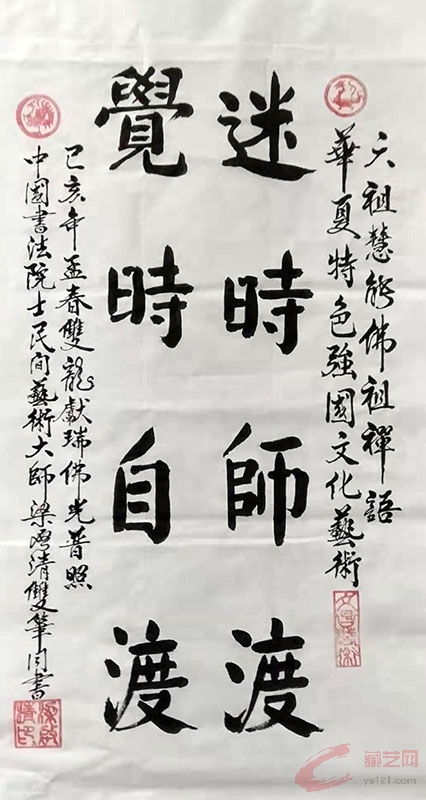 六祖慧能佛祖禪語
華夏特色強國文化藝術
迷時師渡
覺時自渡
己亥年孟春雙龍獻瑞佛光普照
中國書法院士民間藝術大師梁清雙筆同書
藏艺网
ys121.com